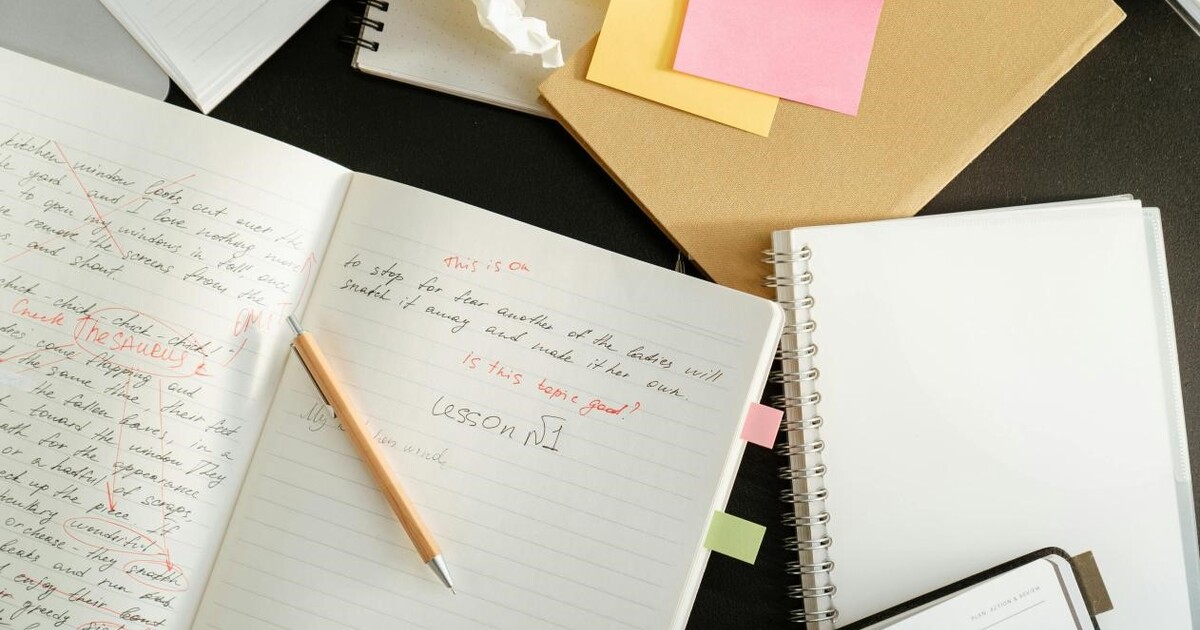 kitchen window looks out over the
yard and I love nothing more
to open my windows in fall, once
remove the screens from the
and shout.
chick-chick, chick-chick!
Check Thesaurus
OMIT
come flapping and
the same time, their feet
the fallen leaves, in a
toward the window. They
for the appearance
or a handful of scraps,
up the piece. If
wonderful
or cheese - they snatch
beaks and run
enjoy their
greedy
This is OK
to stop for fear another of the ladies will
snatch it away and make it her own.
Is this topic good?
Lesson №1
My
PLAN, ACTION & REVIEW